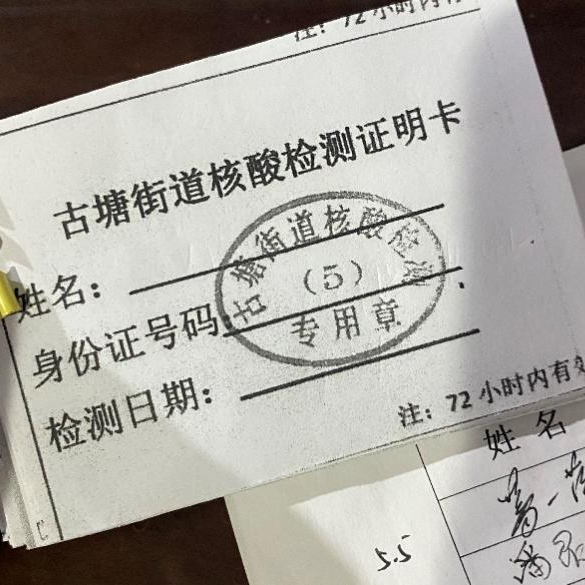 注：72小时内有
古塘街道核酸检测证明卡
姓名：
身份证号码：
检测日期：
古塘街道核酸检测
（5）
专用章
注：72小时内有效
姓名
5.5